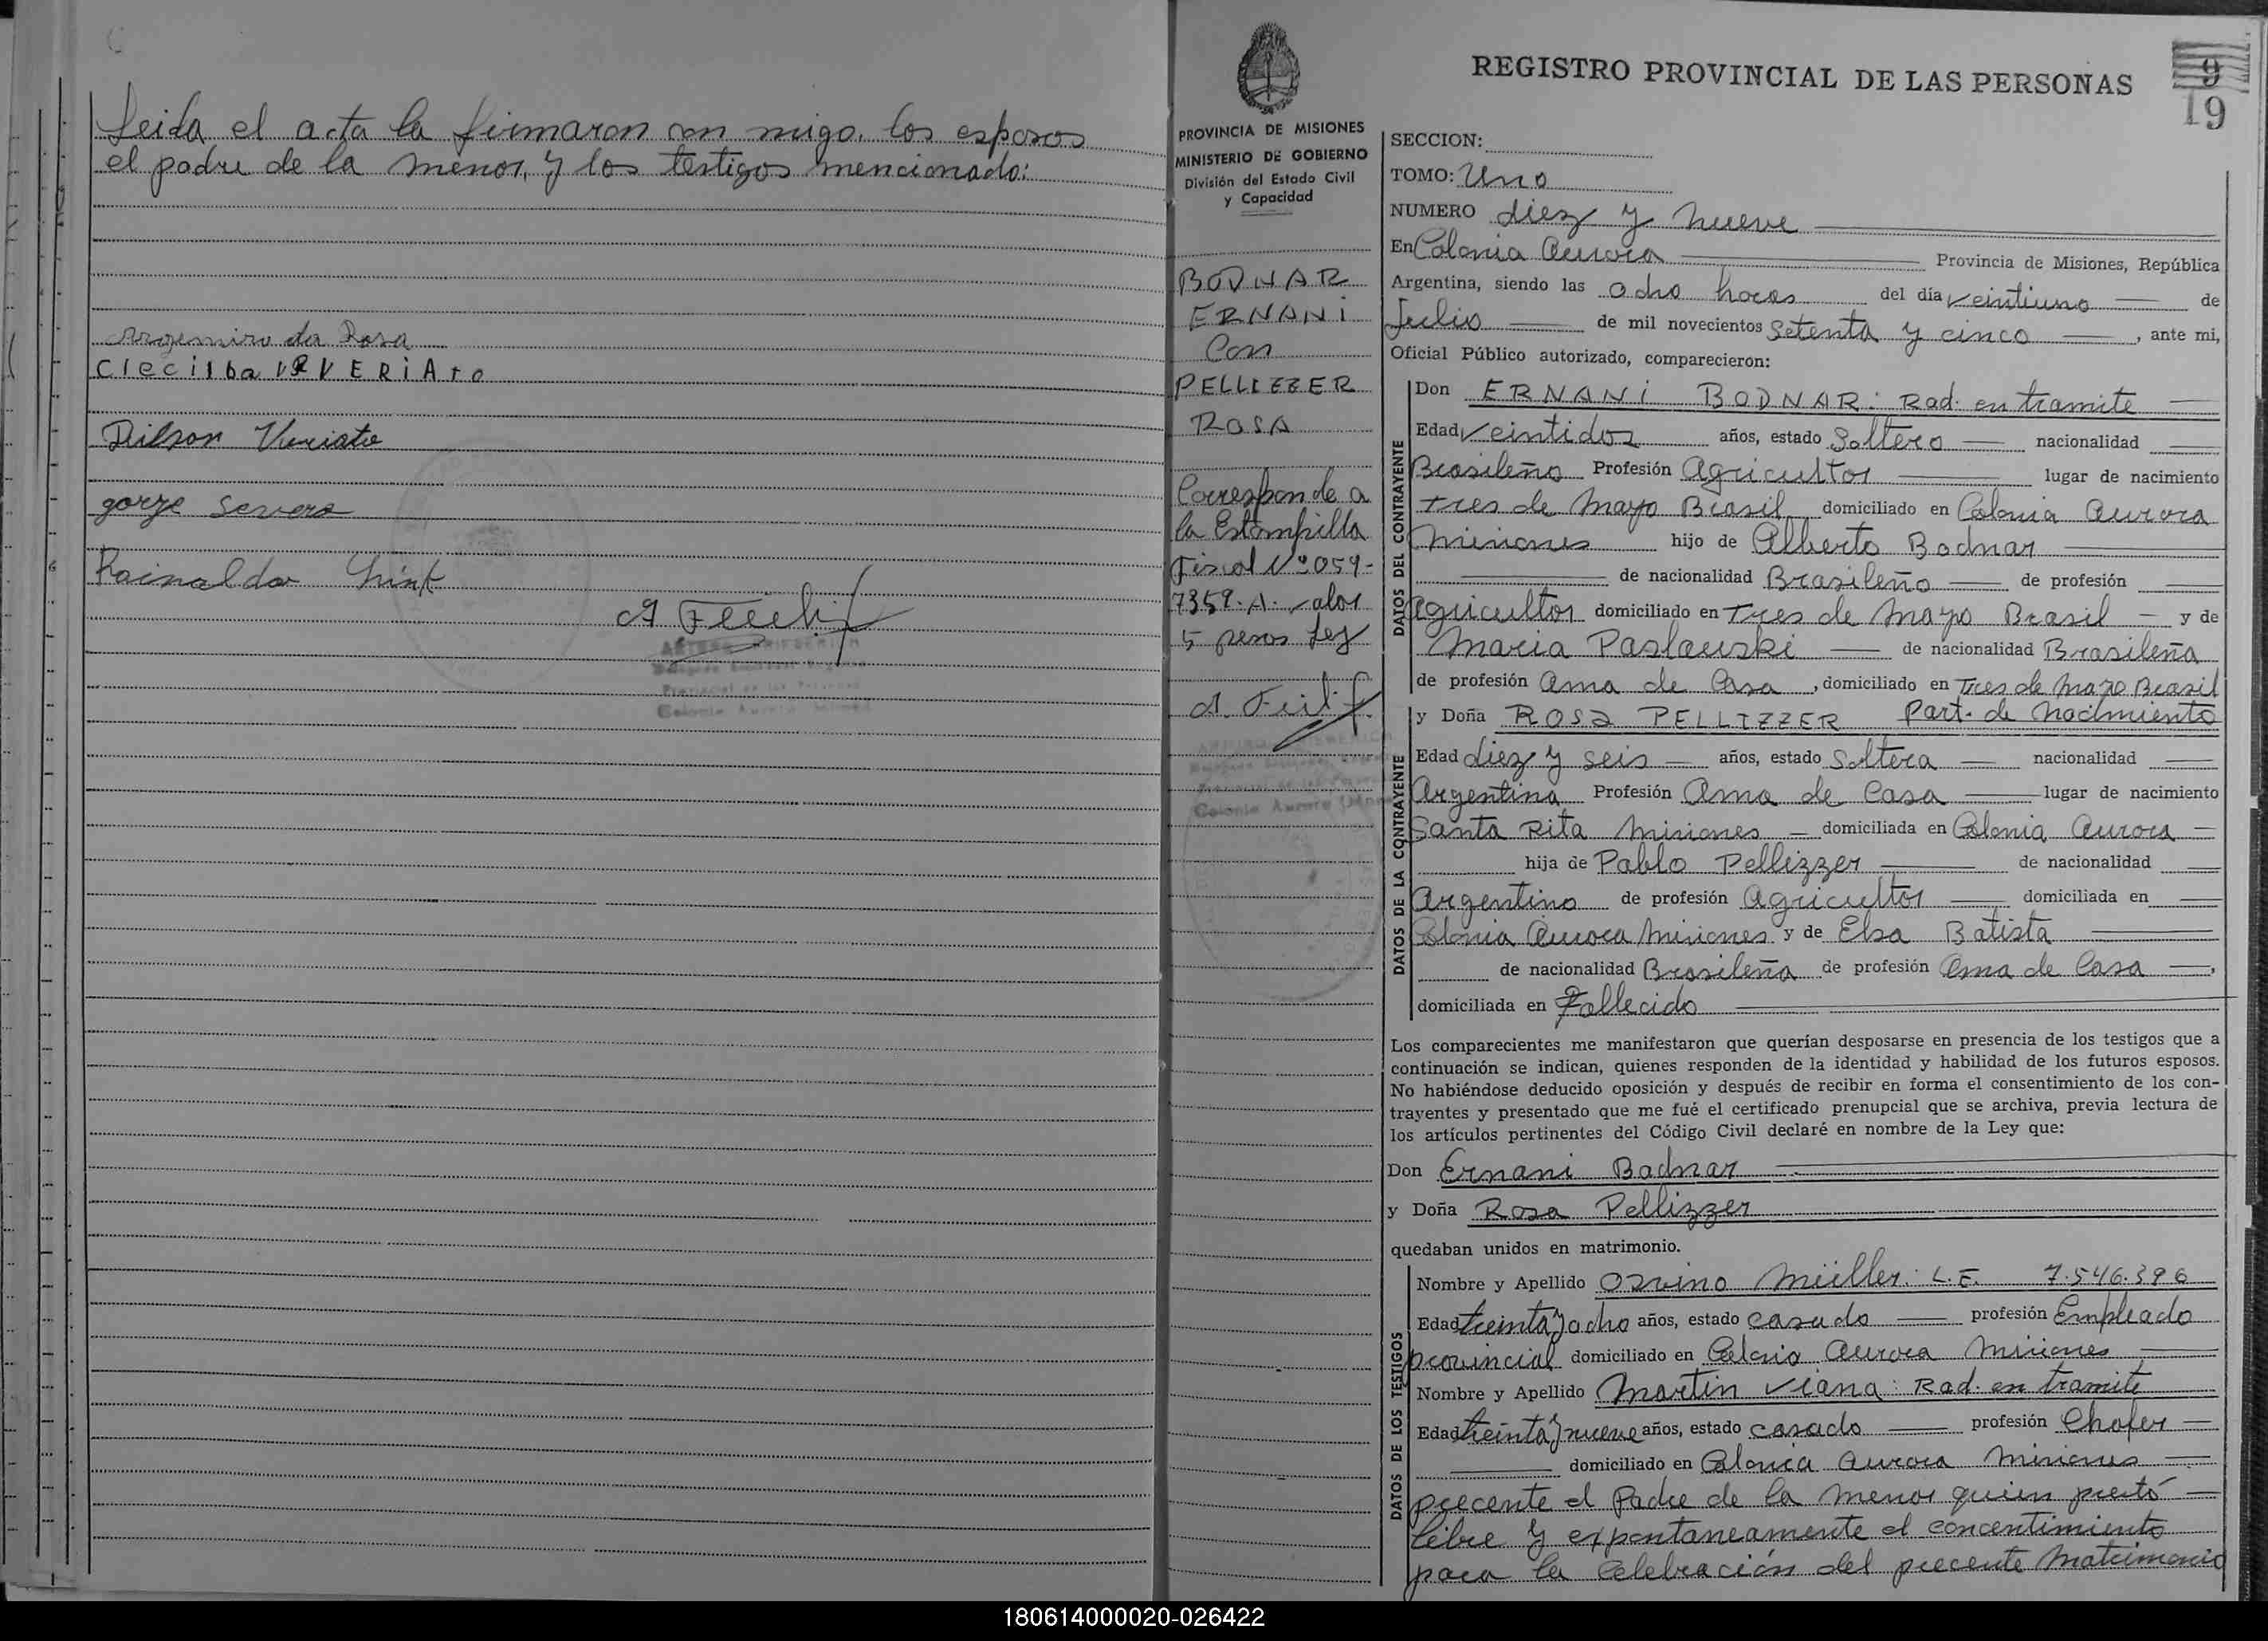 Leida el acta la firmaron con migo. los esposos
el padre de la menor, y los testigos mencionado:
Argemiro da Rosa
Clecilba VRVERiAto
Dilson Viriato
gorze Severo
Rainaldo Chink
Colonia Aurora
PROVINCIA DE MISIONES
MINISTERIO DE GOBIERNO
División del Estado Civil
y Capacidad
BODNAR
ERNANi
Con
PELLIZZER
ROSA
Corresponde a
la Estampilla
Fiscal Nº 059-
7359.A. valor
5 pesos Ley
Colonia Aurora
REGISTRO PROVINCIAL DE LAS PERSONAS
9
19
SECCION:
TOMO: Uno
NUMERO diez y nueve
En Colonia Aurora Provincia de Misiones, República
Argentina, siendo las ocho horas del día veintiuno de
Julio de mil novecientos setenta y cinco, ante mi,
Oficial Público autorizado, comparecieron:
DATOS DEL CONTRAYENTE
Don ERNANi BODNAR: Rad. en tramite
Edad veintidos años, estado Soltero nacionalidad
Brasileño Profesión Agricultor lugar de nacimiento
tres de Mayo Brasil domiciliado en Colonia Aurora
Misiones hijo de Alberto Bodnar
de nacionalidad Brasileño de profesión
Agricultor domiciliado en Tres de Mayo Brasil y de
Maria Paslauski de nacionalidad Brasileña
de profesión Ama de Casa, domiciliado en Tres de Mayo Brasil
DATOS DE LA CONTRAYENTE
y Doña ROSA PELLIZZER Part. de Nacimiento
Edad diez y seis años, estado Soltera nacionalidad
Argentina Profesión Ama de Casa lugar de nacimiento
Santa Rita Misiones domiciliada en Colonia Aurora
hija de Pablo Pellizzer de nacionalidad
Argentino de profesión Agricultor domiciliada en
Colonia Aurora Misiones y de Elsa Batista
de nacionalidad Brasileña de profesión Ama de Casa,
domiciliada en Fallecido
Los comparecientes me manifestaron que querían desposarse en presencia de los testigos que a
continuación se indican, quienes responden de la identidad y habilidad de los futuros esposos.
No habiéndose deducido oposición y después de recibir en forma el consentimiento de los con-
trayentes y presentado que me fué el certificado prenupcial que se archiva, previa lectura de
los artículos pertinentes del Código Civil declaré en nombre de la Ley que:
Don Ernani Bodnar
y Doña Rosa Pellizzer
quedaban unidos en matrimonio.
DATOS DE LOS TESTIGOS
Nombre y Apellido Osvino Müller: L.E. 7.546.396
Edad treinta y ocho años, estado casado profesión Empleado
provincial domiciliado en Colonia Aurora Misiones
Nombre y Apellido Martin Viana: Rad. en tramite
Edad treinta y nueve años, estado casado profesión Chofer
domiciliado en Colonia Aurora Misiones
precente el Padre de la menor quien prestó
libre y expontaneamente el concentimiento
para la Celebración del precente Matrimonio
180614000020-026422